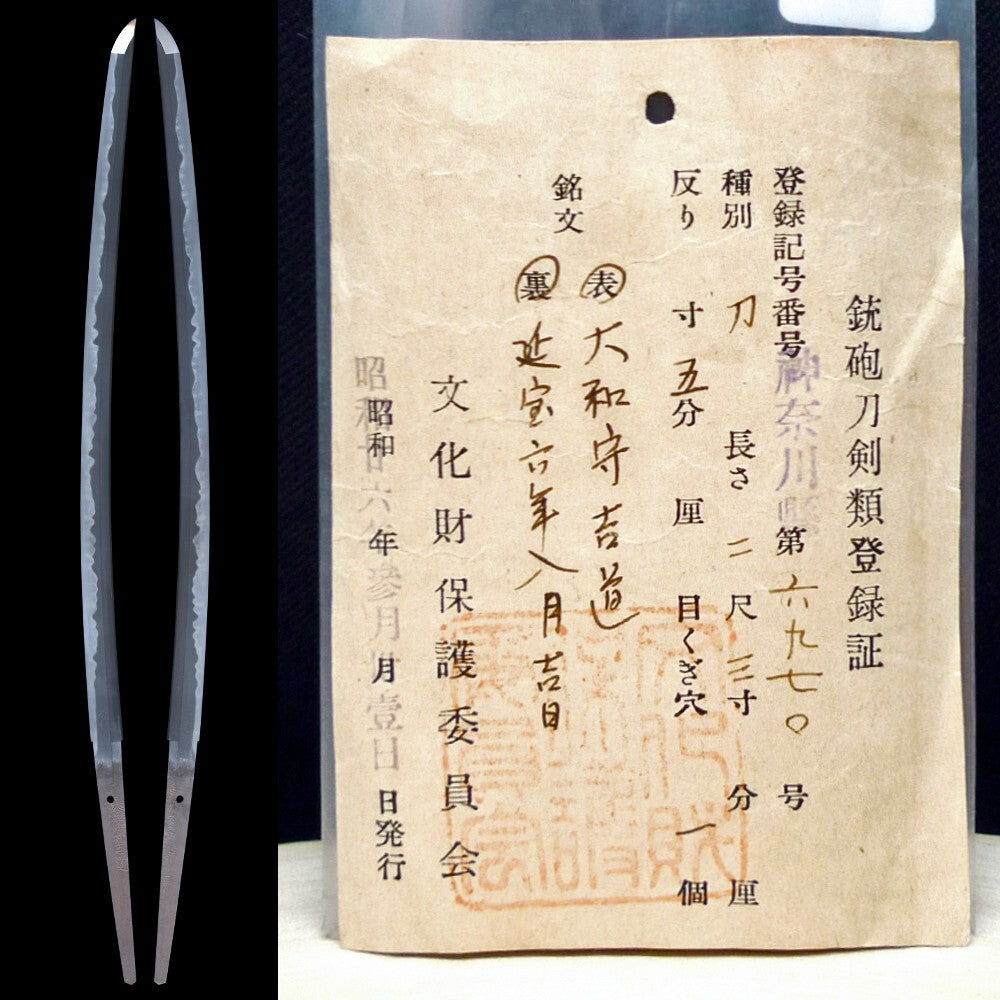 銃砲刀剣類登録証
登録記号番号 神奈川県 第六九七〇号
種別 刀 長さ 二尺三寸 分 厘
反り 寸五分 厘 目くぎ穴 一個
銘文 表 大和守吉道
裏 延宝六年八月吉日
文化財保護委員会
昭和 年 月 日発行
昭和廿六年参月卅壹日